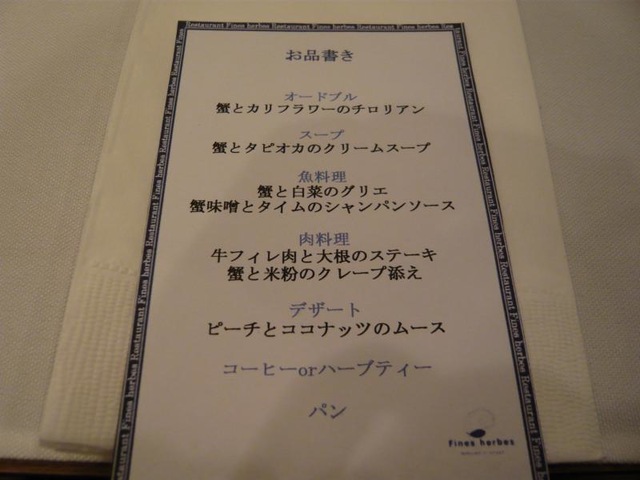 Restaurant Fines herbes Restaurant Fines herbes Restaurant Fines herbes Res
お品書き
オードブル
蟹とカリフラワーのチロリアン
スープ
蟹とタピオカのクリームスープ
魚料理
蟹と白菜のグリエ
蟹味噌とタイムのシャンパンソース
肉料理
牛フィレ肉と大根のステーキ
蟹と米粉のクレープ添え
デザート
ピーチとココナッツのムース
コーヒーorハーブティー
パン
Fines herbes